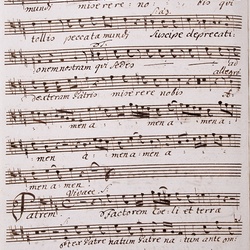 mundi miserere nobis qui
tollis peccata mundi suscipe deprecati-
onem nostram qui sedes
allegro
dexteram Patris miserere nobis A-
men a men a
men a men a
men a men
Vivace
Patrem factorem Coeli et terra
et ex Patre natum Patre natum ante omi